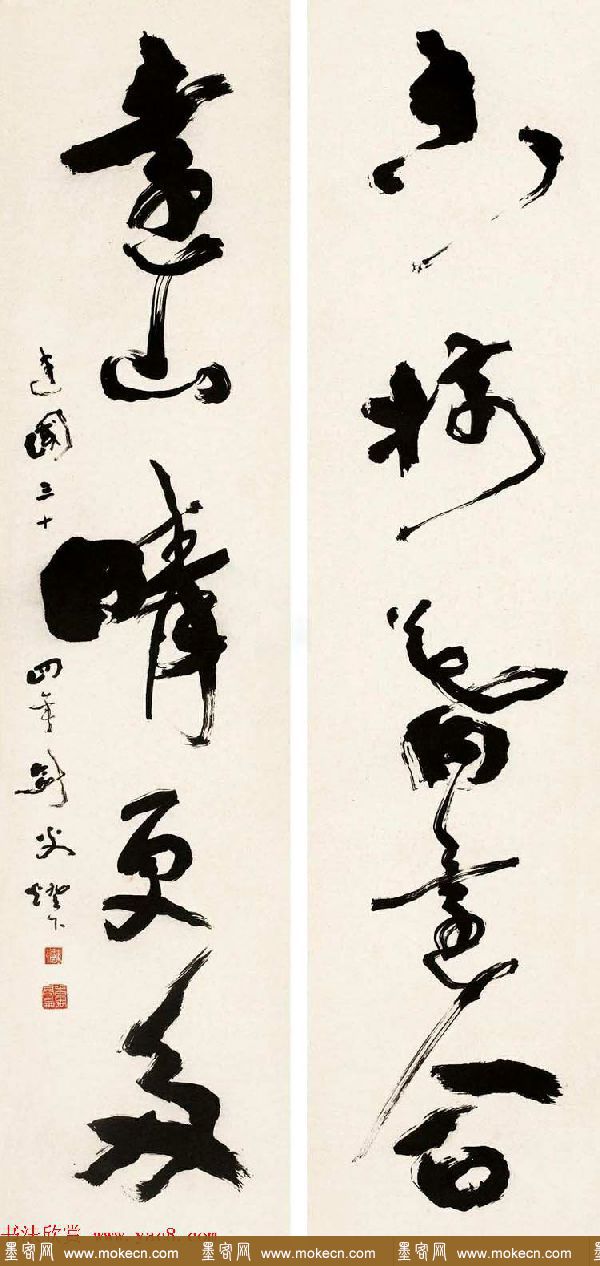 高樹還
遠山晴更多
建國三十四年劍父燈下
书法欣赏 www.yac8.com
墨客网 www.mokecn.com 墨客网 www.mokecn.com 墨客网 www.mokecn.com 墨客网